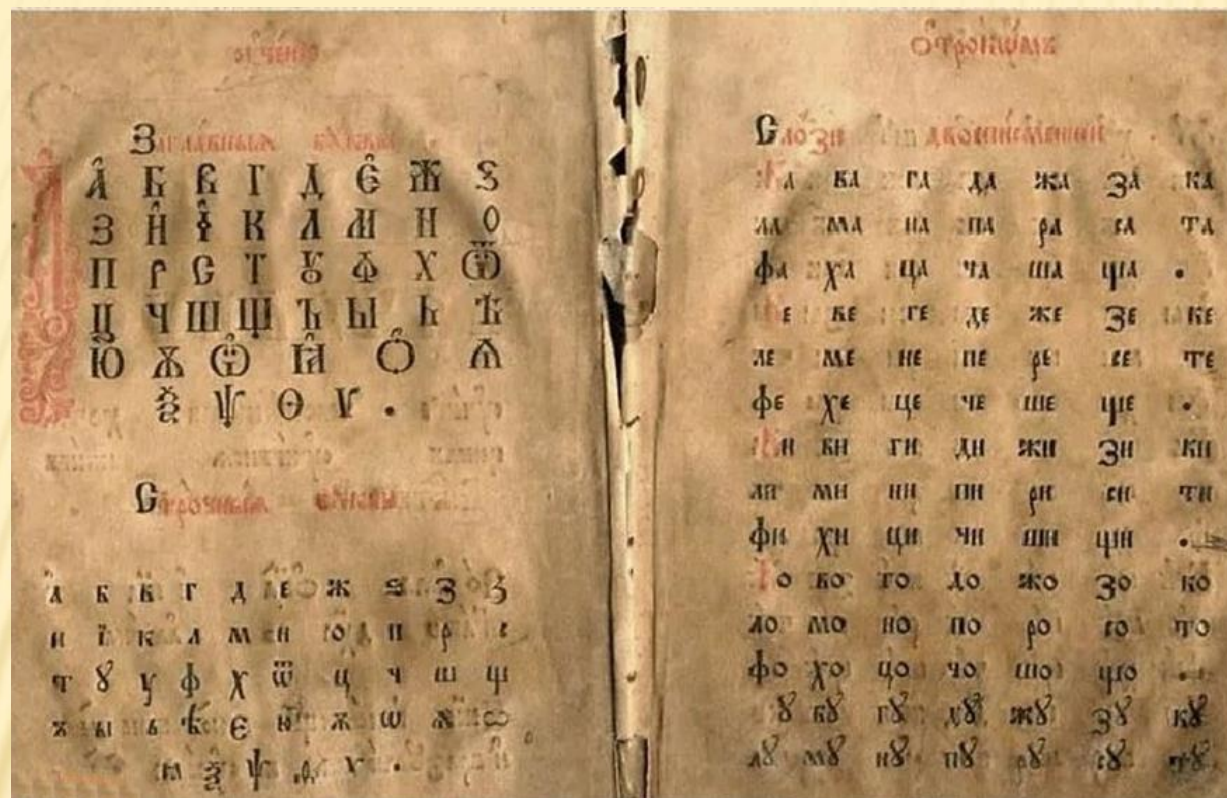 Заглавныѧ
А Б В Г Д Є Ж Ѕ
З И І К Л М Н О
П Р С Т Ꙋ Ф Х Ѿ
Ц Ч Ш Щ Ъ Ы Ь Ѣ
Ю Ѫ Ѽ Ꙗ Ѻ Ѧ
Ѯ Ѱ Ѳ Ѵ .
Строчныѧ
а б в г д е ж ѕ з ꙁ
и ї к л м н о п р с
т ꙋ у ф х ѿ ц ч ш щ
ъ ы ь ѣ є ю ѫ ѡ ѧ
ꙗ ѯ ѱ ѵ .
Слози двописменнїи
ба ва га да жа за ка
ла ма на па ра са та
фа ха ца ча ша ща .
бе ве ге де же зе ке
ле ме не пе ре се те
фе хе це че ше ще .
би ви ги ди жи зи ки
ли ми ни пи ри си ти
фи хи ци чи ши щи .
бо во го до жо зо ко
ло мо но по ро со то
фо хо цо чо шо що .
бꙋ вꙋ гꙋ дꙋ жꙋ зꙋ кꙋ
лꙋ мꙋ нꙋ пꙋ рꙋ сꙋ тꙋ